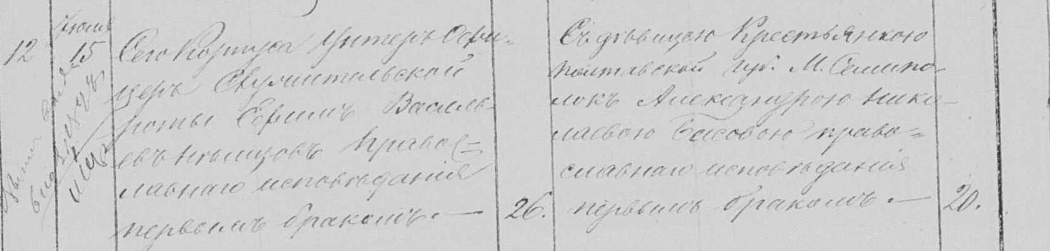 12
Июля
15
Сего Корпуса Унтеръ Офи-
церъ Служительской
роты Ефимъ Василь-
евъ Кольцовъ Правос-
лавнаго исповѣданія
первымъ бракомъ. —
26.
Съ дѣвицею Крестьянкою
Полтавской губ. М. Семипо-
локъ Александрою Нико-
лаевою Басовою право-
славнаго исповѣданія
первымъ бракомъ. —
20.